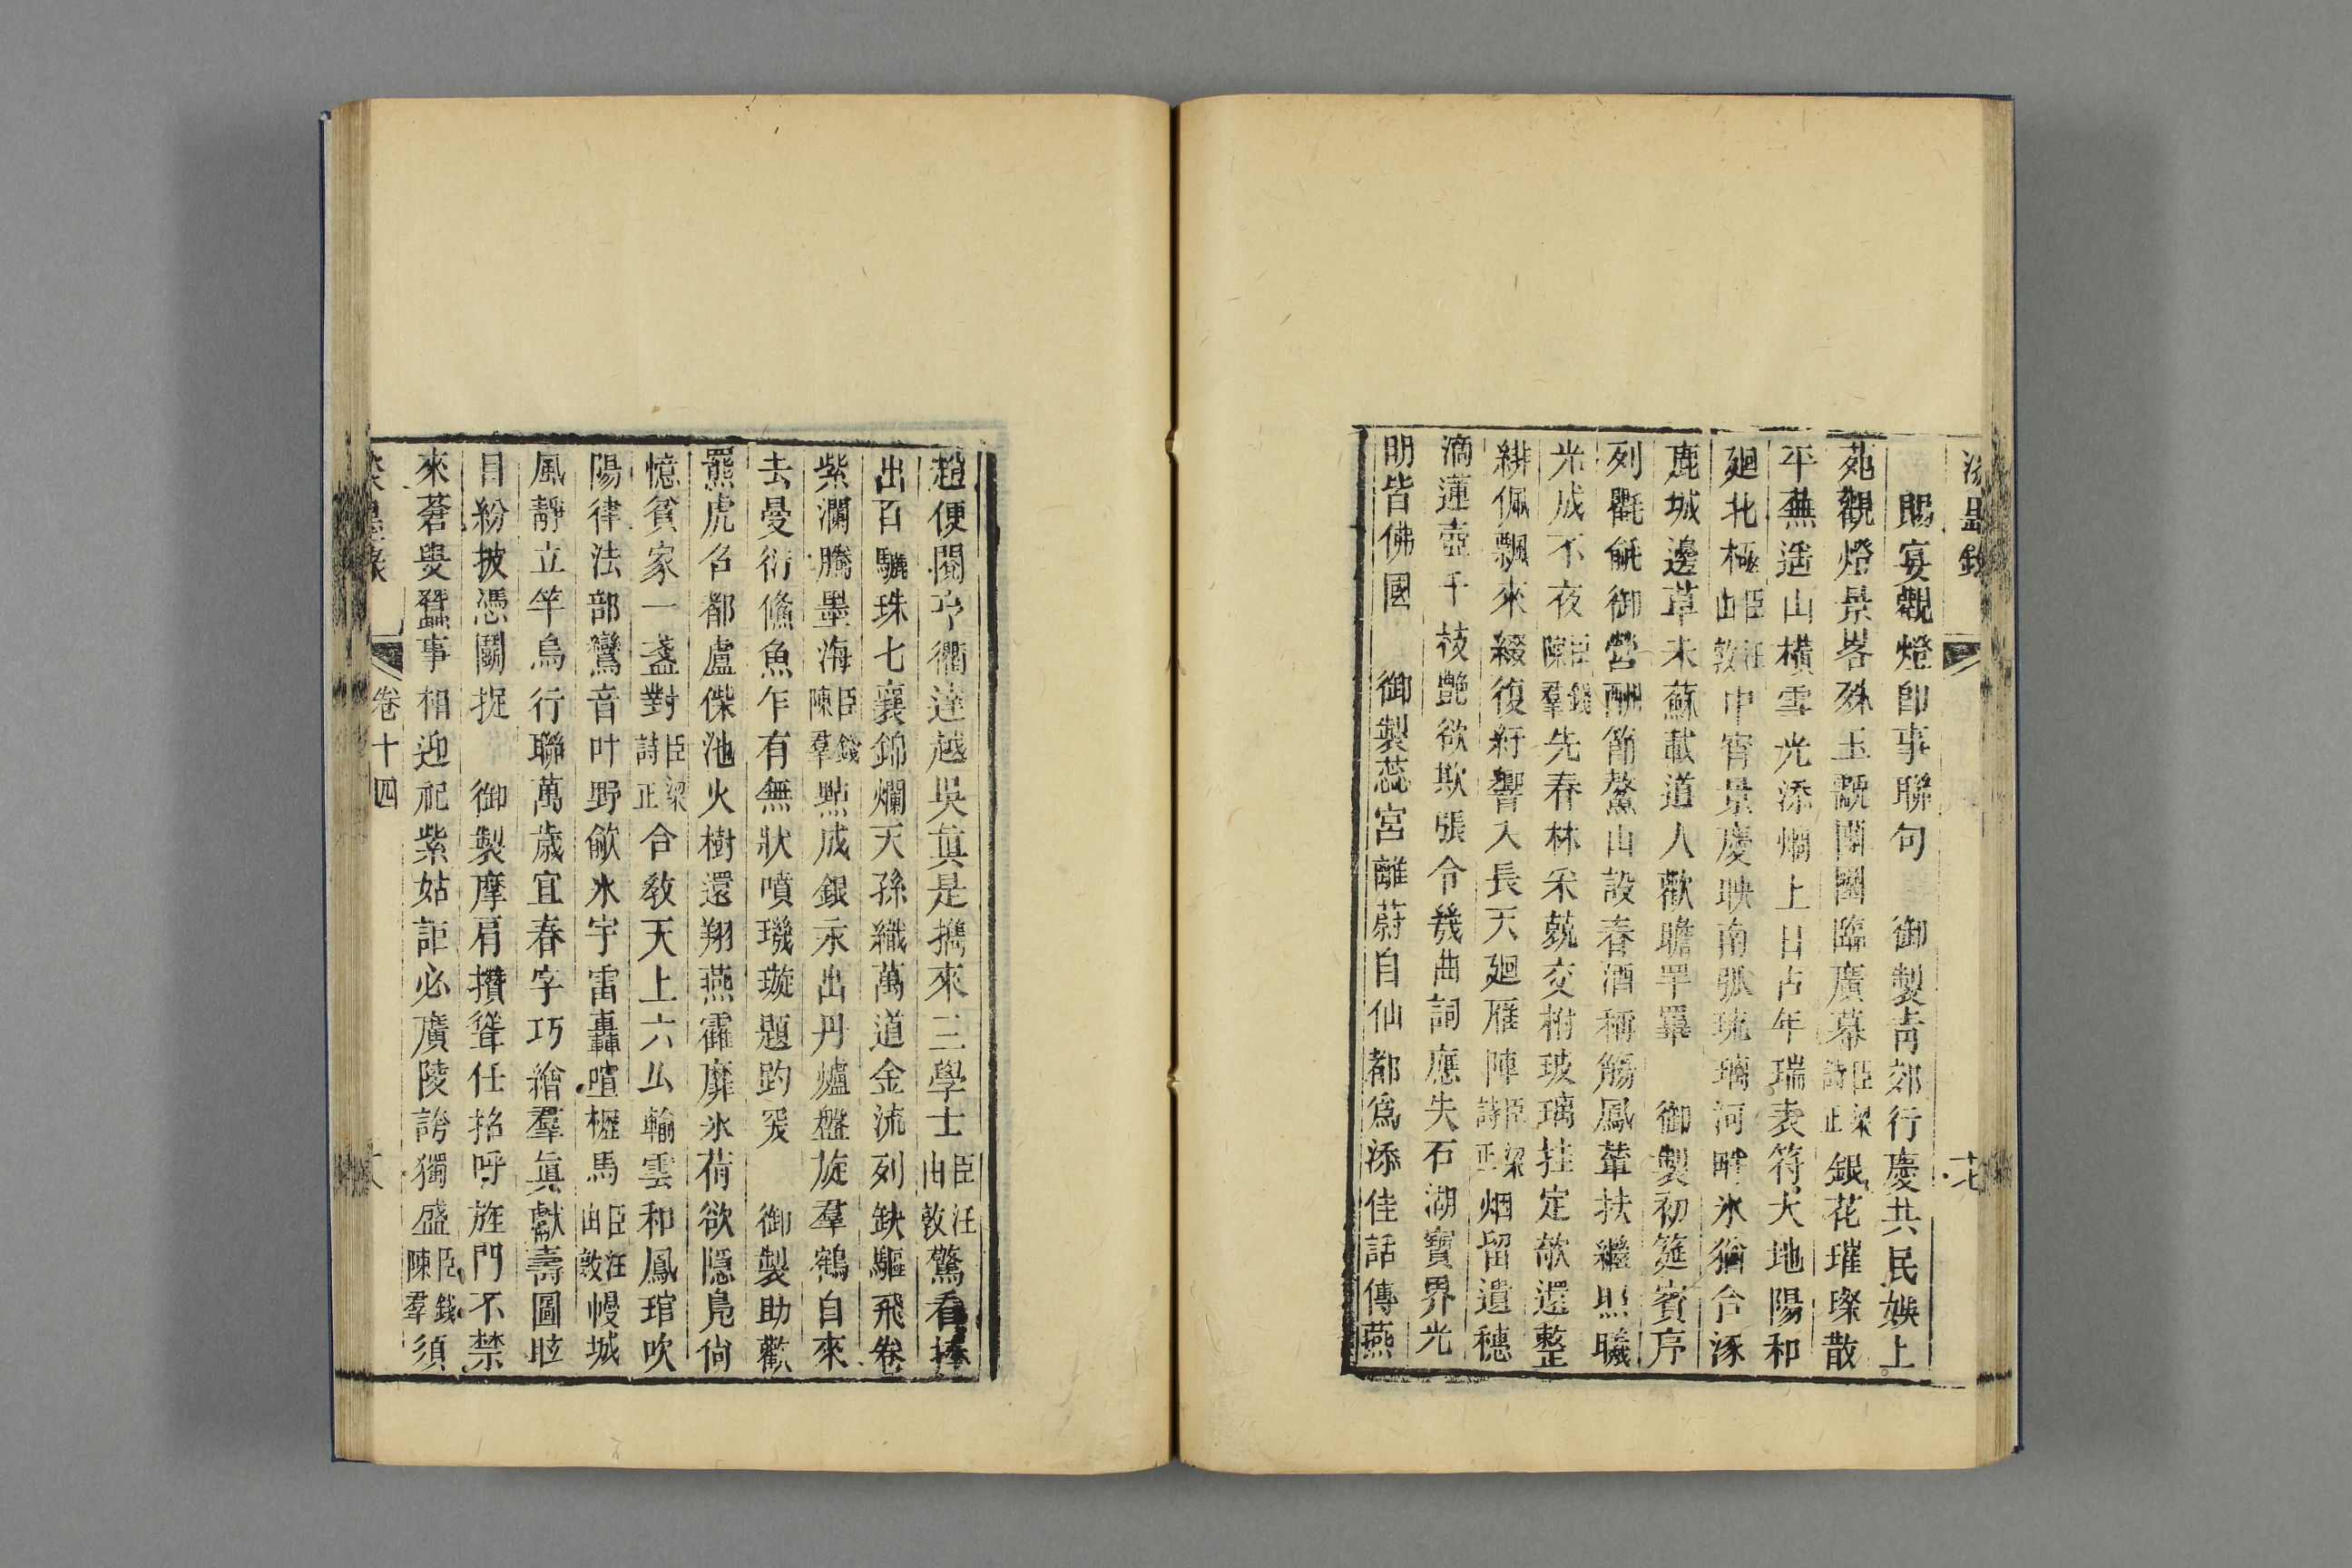 賜宴觀燈即事聯句　御製靑郊行慶共民娛上
苑觀燈景畧殊玉戲團團臨廣幕臣梁詩正銀花璀璨散
平蕪遥山橫雪光添燗上日占年瑞表符大地陽和
廻北極臣汪由敦中宵景慶映南弧琉璃河畔氷猶合涿
鹿城邊草未蘇載道人歡瞻罕罼　御製初筵賓序
列氍毹御營酬節鰲山設春酒稱觴鳳輦扶繼照曦
光成不夜臣錢陳羣先春林采兢交柎玻璃挂定欹還整
緋佩飄來綴復紆響入長天廻雁陣臣梁詩正烟留遺穗
滴蓮壺千枝艷欲欺張令幾曲詞應失石湖寶界光
明皆佛國　御製蕊宮離蔚自仙都爲添佳話傳燕
趙便閲亨衢達越吳眞是擕來三學士臣汪由敦驚看捧
出百驪珠七襄錦爛天孫織萬道金流列缺驅飛卷
紫瀾騰墨海臣錢陳羣點成銀汞出丹爐盤旋羣鶴自來
去曼衍鯈魚乍有無狀噴璣璇題趵突　御製助歡
羆虎名都盧傑池火樹還翔燕霍靡氷荷欲隱鳧尙
憶貧家一盞對臣梁詩正合敎天上六么輸雲和鳳琯吹
陽律法部鸞音叶野歈氷宇雷轟喧櫪馬臣汪由敦幔城
風靜立竿烏行聯萬歲宜春字巧繪羣眞獻壽圖眩
目紛披憑鬭捉　御製摩肩攢聳任招呼旌門不禁
來蒼叟蠶事相迎祀紫姑詎必廣陵誇獨盛臣錢陳羣須
卷十四